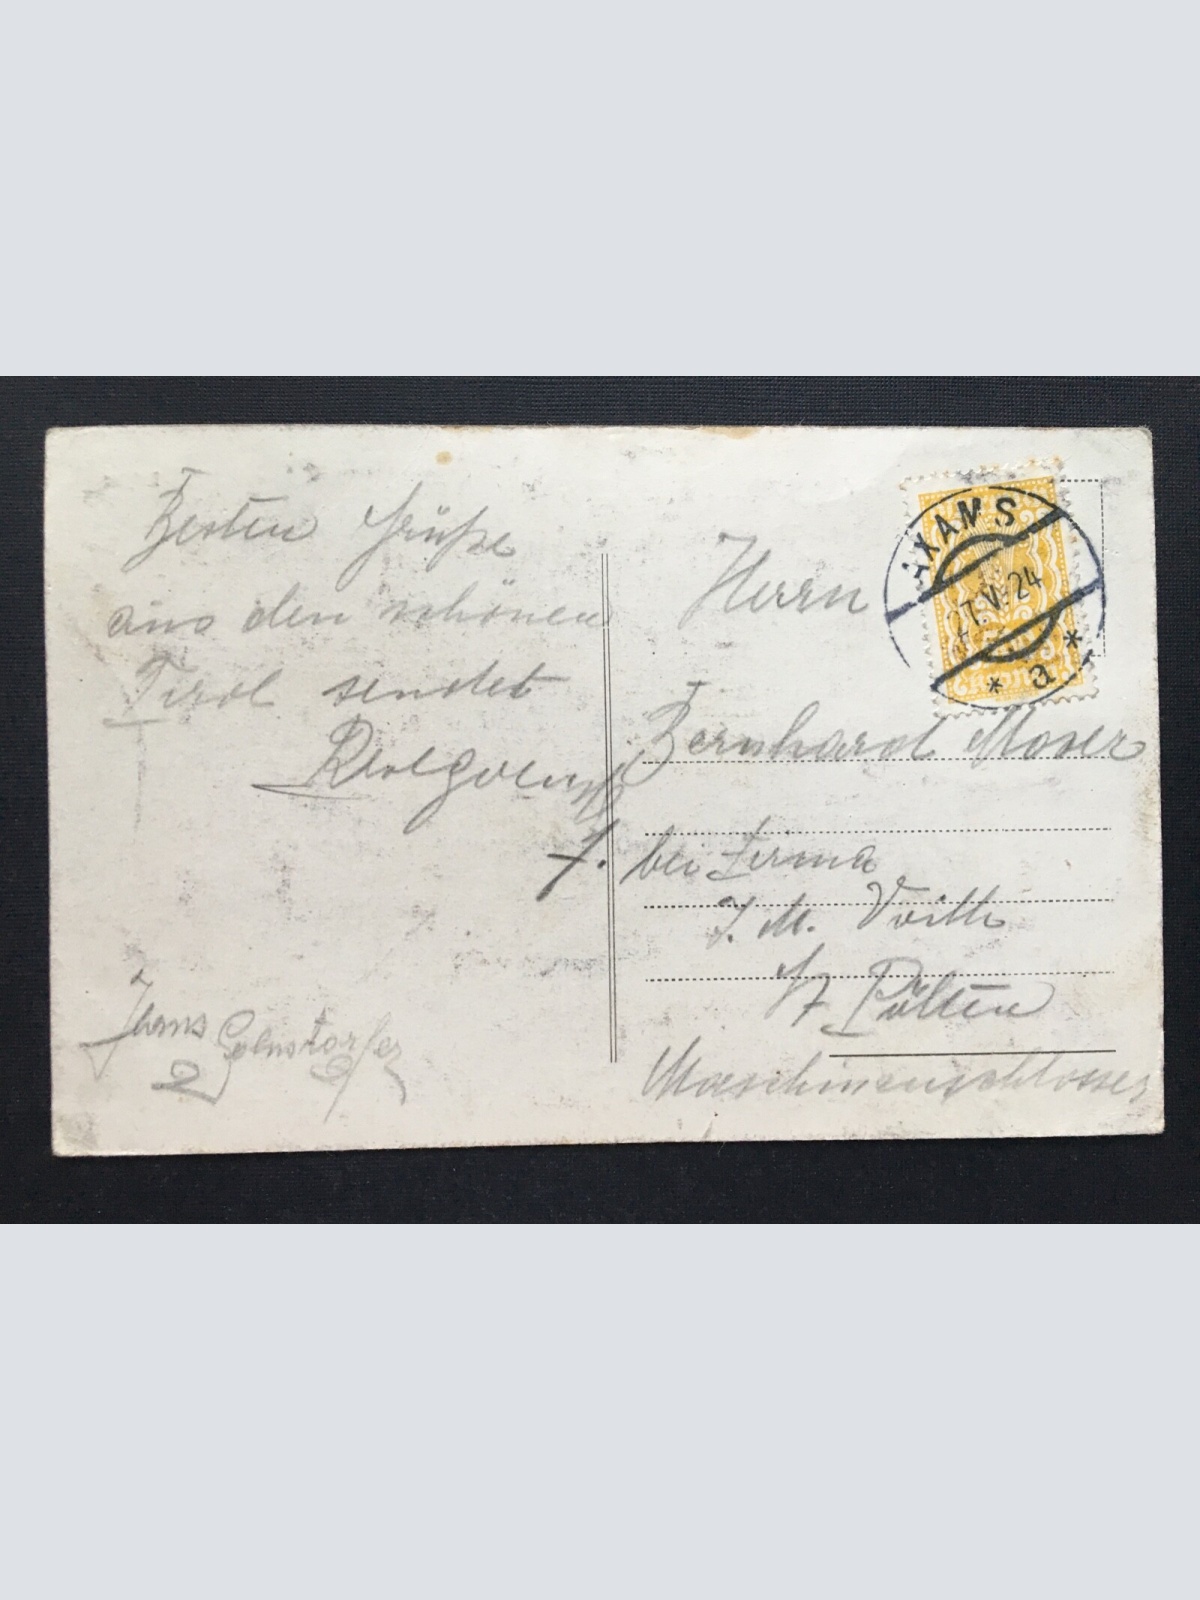 Besten Grüße
aus den schönen
Tirol sendet
Hans
Herrn
Bernhard Moser
bei Firma
J. M. Voith
St Pölten
Maschinenschlosser
AXAMS
27.V.24
* a *